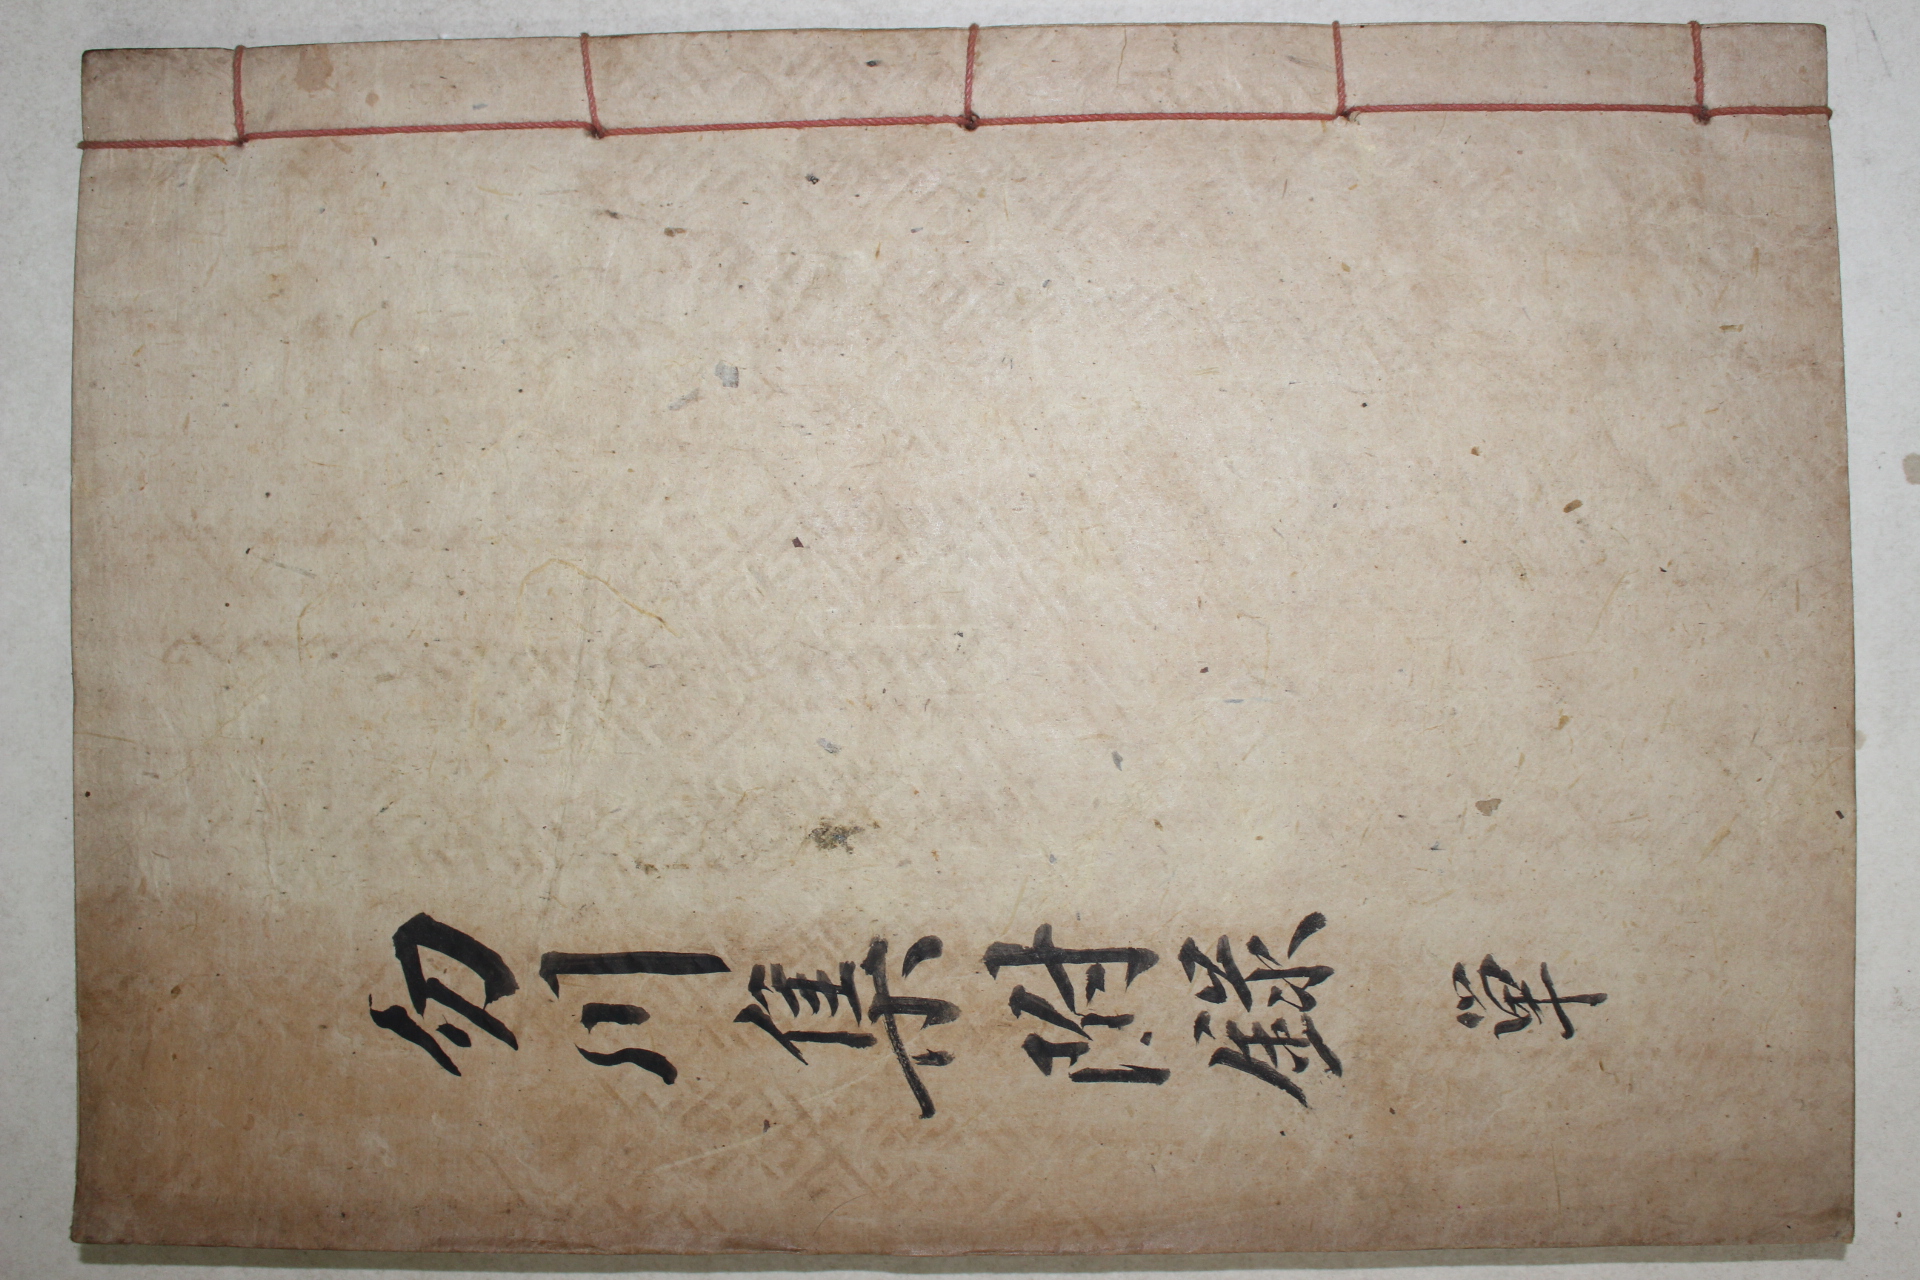 勿川集附錄 単